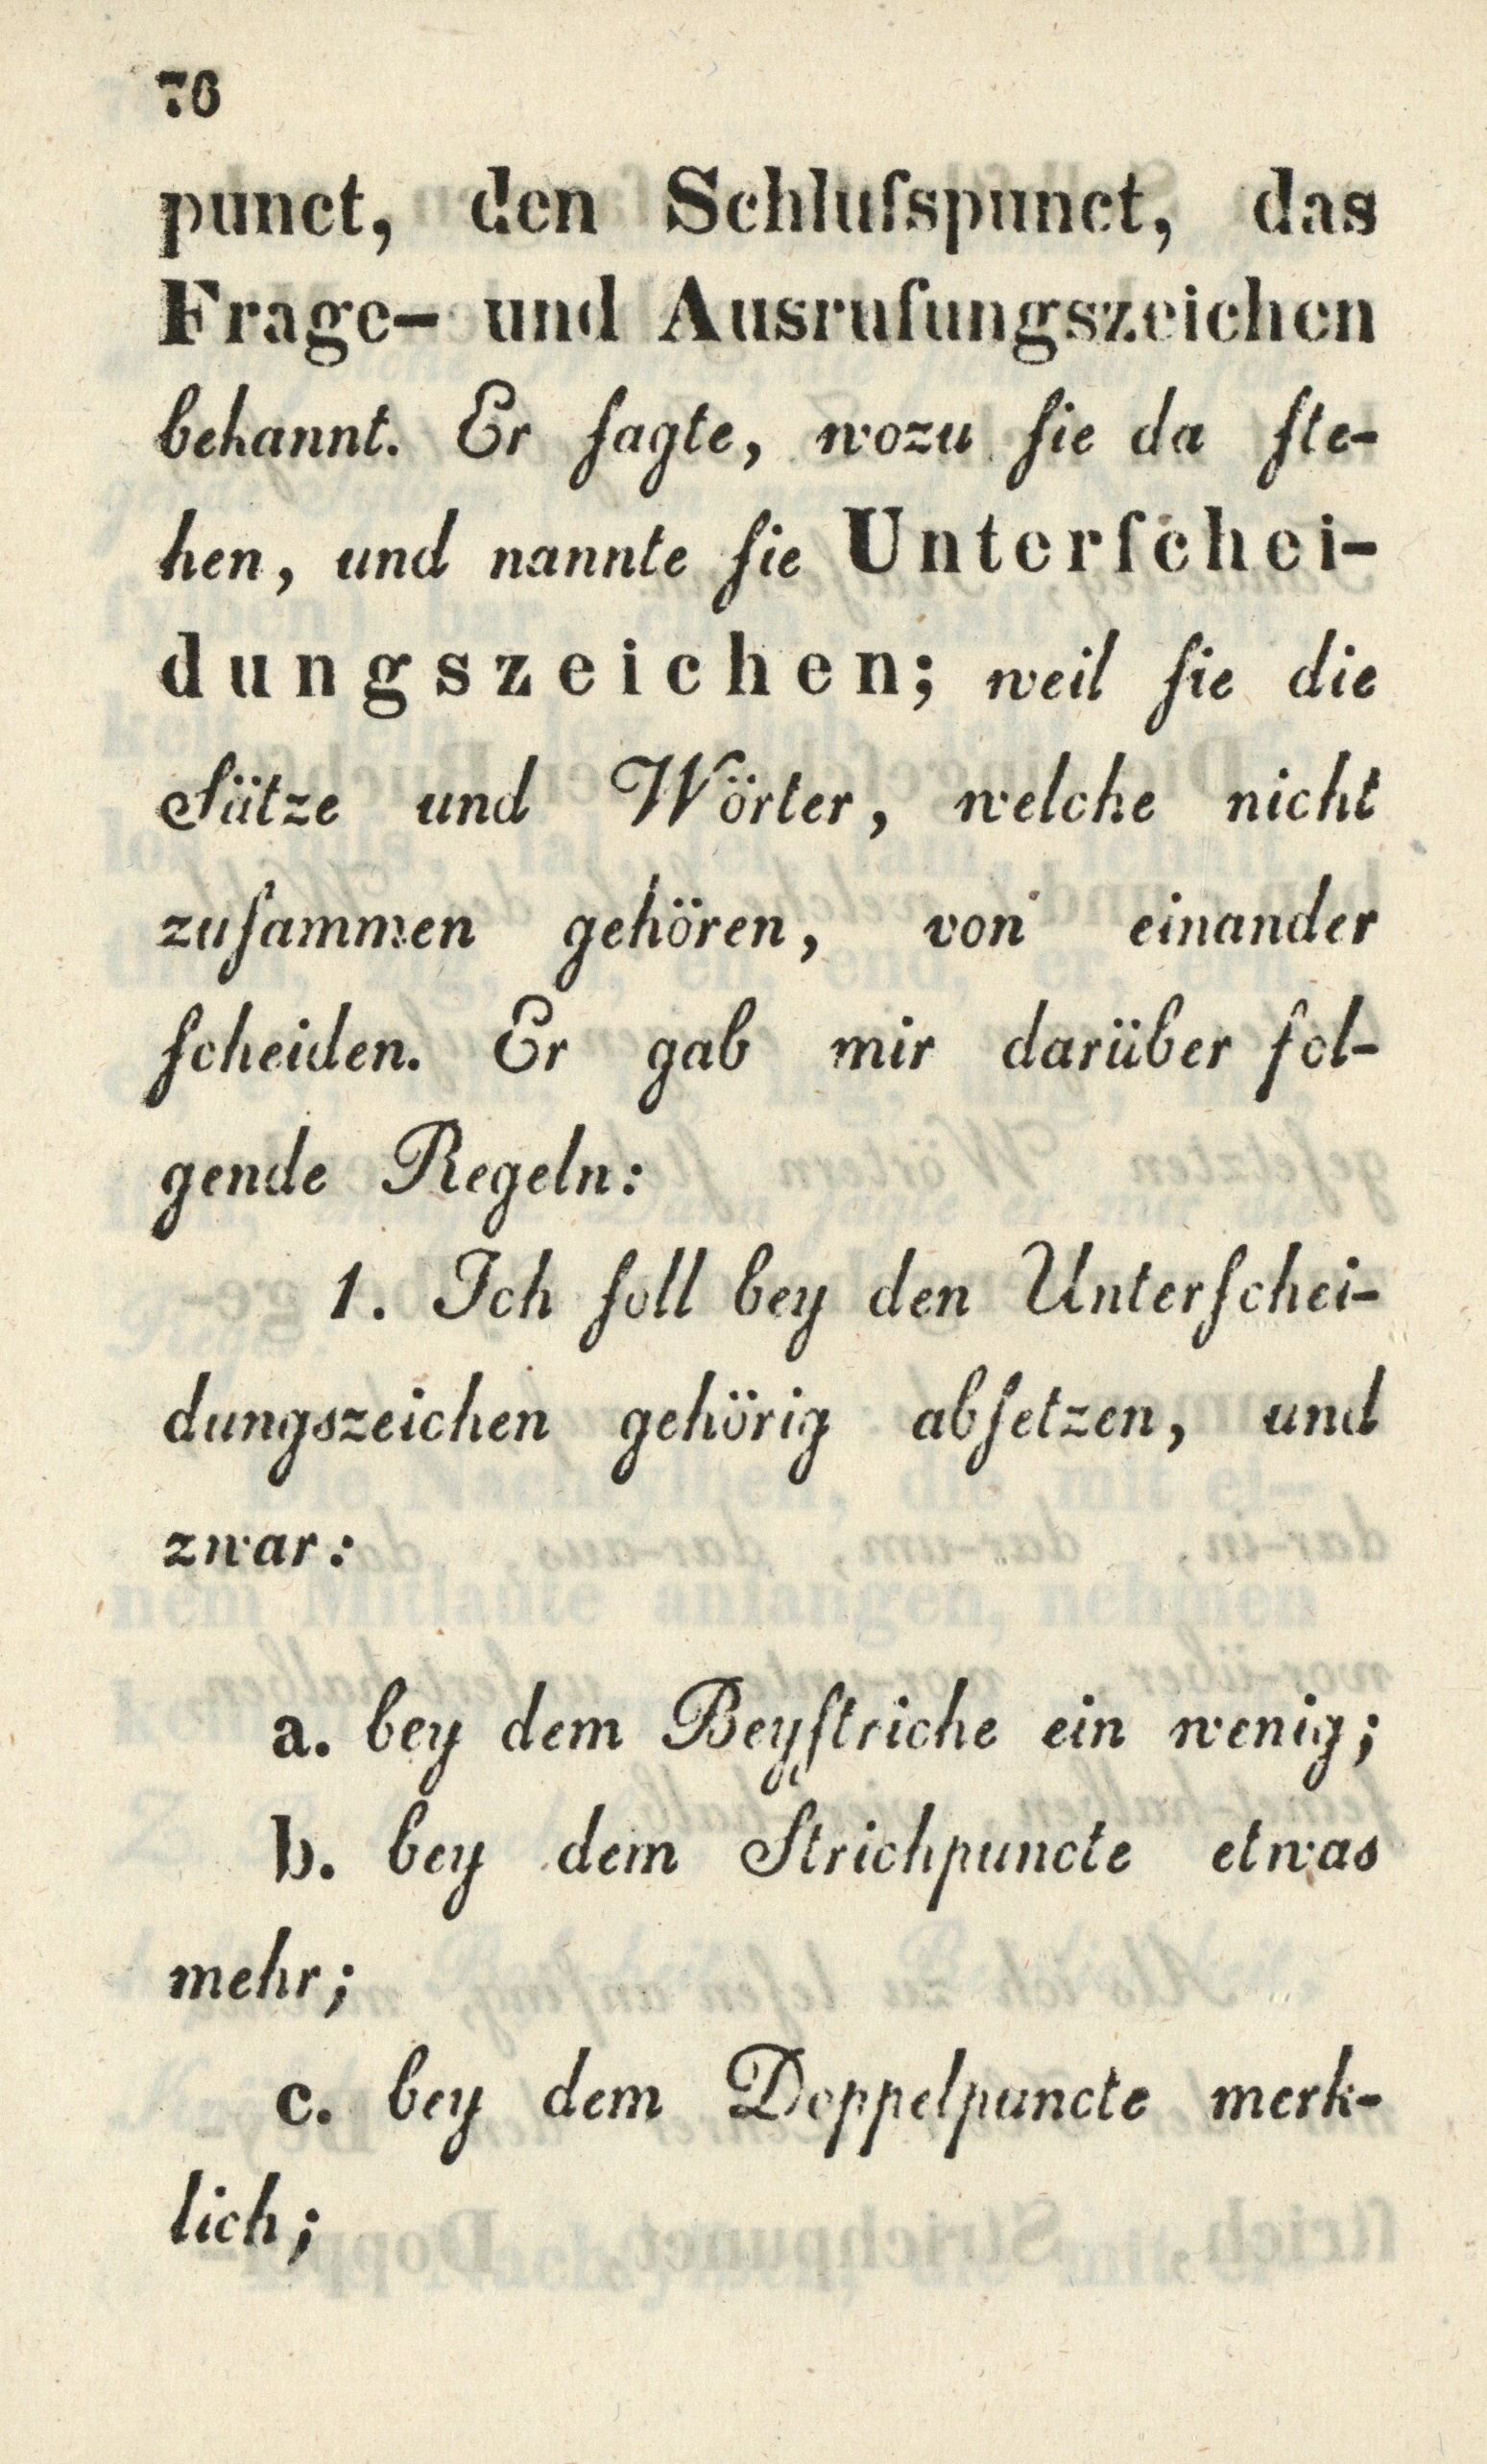 76
punct, den Schluſspunct, das
Frage- und Ausrufungszeichen
bekannt. Er ſagte, wozu ſie da ſte-
hen, und nannte ſie Unterſchei-
dungszeichen; weil ſie die
Sätze und Wörter, welche nicht
zuſammen gehören, von einander
ſcheiden. Er gab mir darüber fol-
gende Regeln:
1. Ich ſoll bey den Unterſchei-
dungszeichen gehörig abſetzen, und
zwar:
a. bey dem Beyſtriche ein wenig;
b. bey dem Strichpuncte etwas
mehr;
c. bey dem Doppelpuncte merk-
lich;